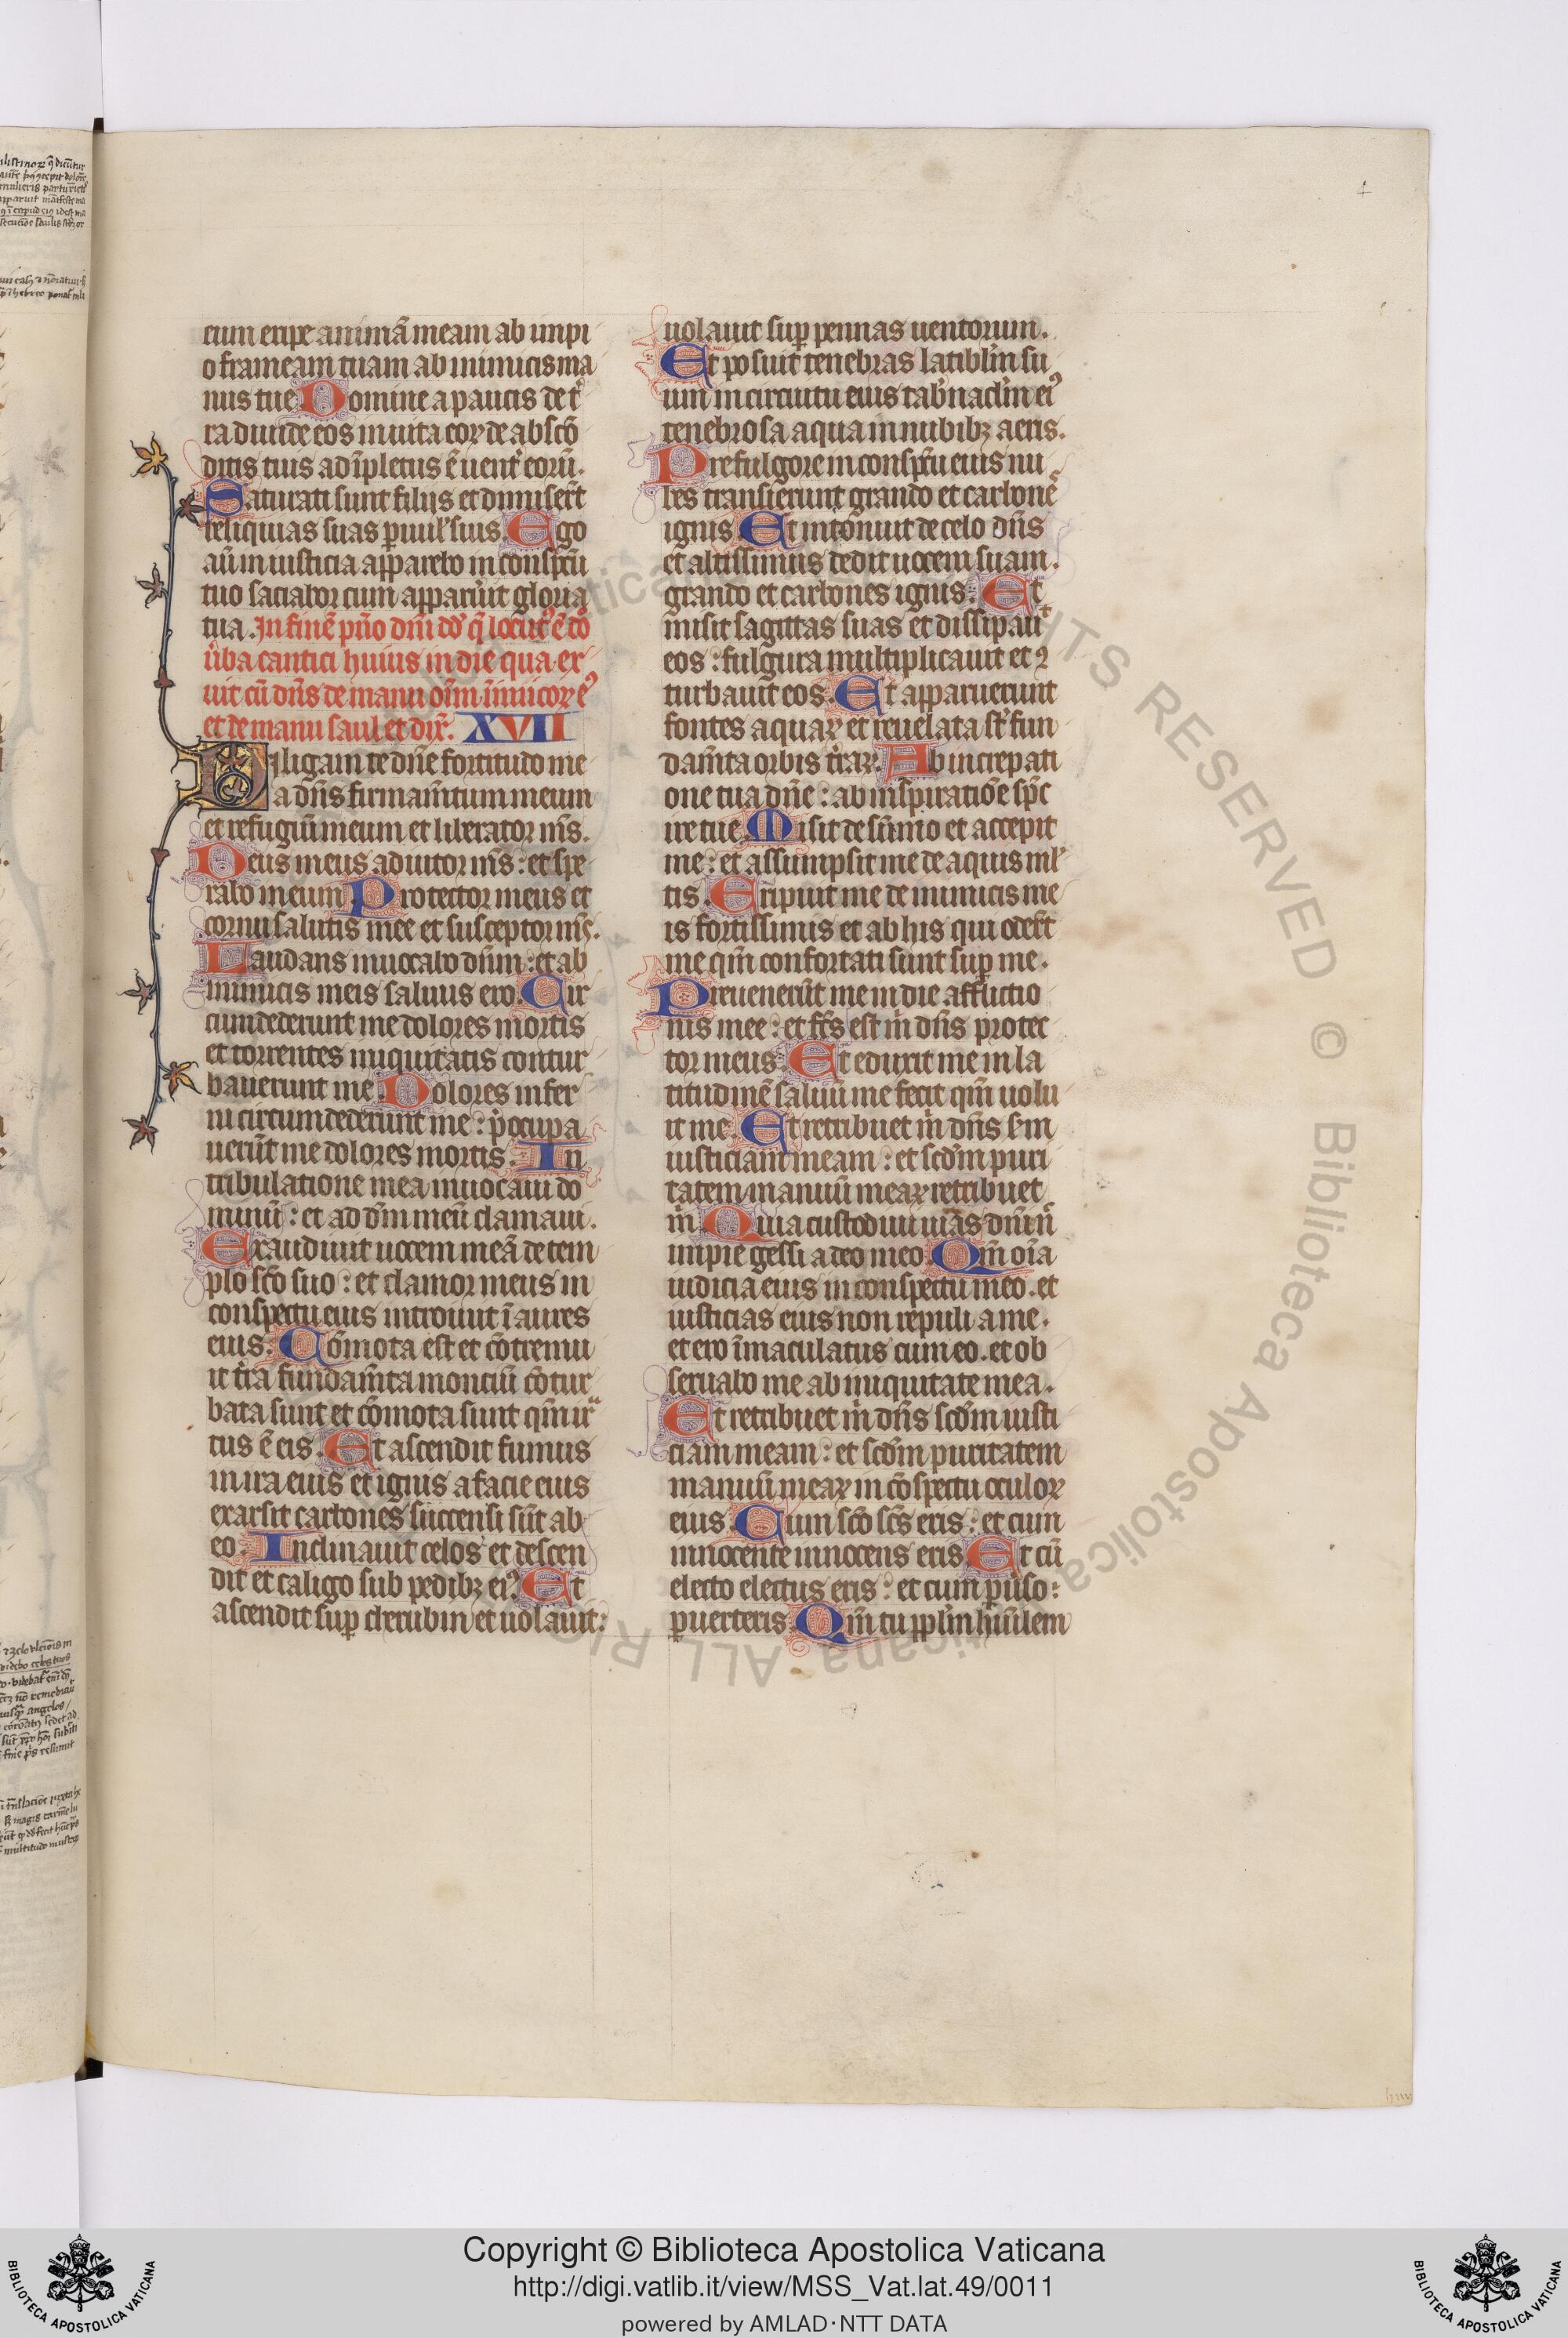 4
eum eripe animā meam ab impi
o frameam tuam ab inimicis ma
nus tue. Domine a paucis de t̾
ra diuide eos in uita eoꝝ de abscō
ditis tuis adīpletus ē uent̾ eorū.
Saturati sunt filijs et dimiser̄t
reliquias suas ꝑuul̾ suis. Ego
aū in iusticia apparebo in conspc̄u
tuo saciabor cum apparu̾it gloria
tua. In finē pu̾o dn̄i dd̾ q̄ locut̾ ē dō
u̾ba cantici huius in die qua er
uit cū dn̄s de manu om̄ inimicoꝝ ei̾
et de manu saul et dix̾. XVII
Diligam te dn̄e fortitudo me
a dn̄s firmam̄tum meum
et refugiū meum et liberator m̄s.
Deus meus adiutor m̄s: et spe
rabo in eum. Protector meus et
cornu salutis mee et susceptor m̄s.
Laudans inuocabo dn̄m: et ab
inimicis meis saluus ero. Cir
cumdederunt me dolores mortis
et torrentes iniquitatis contur
bauerunt me. Dolores infer
ni circumdederunt me: p̾ocupa
uerūt me dolores mortis. In
tribulatione mea inuocaui do
minū: et ad dm̄ meū clamaui.
Exaudiuit uocem meā de tem
plo sc̄o suo: et clamor meus in
conspectu eius introiuit ī aures
eius. Cōmota est et cōtremu
it t̾ra fundam̄ta montiū cōtur
bata sunt et cōmota sunt qm̄ ira
tus ē eis. Et ascendit fumus
in ira eius et ignis a facie eius
exarsit carbones succensi sūt ab
eo. Inclinauit celos et descen
dit et caligo sub pedibꝫ ei̾. Et
ascendit suꝑ cherubin et uolauit:
uolauit suꝑ pennas uentorum.
Et posuit tenebras latibl̾m su
um in circuitu eius tab̾nacl̾m ei̾
tenebrosa aqua in nubibꝫ aeris.
Pre fulgore in conspc̄u eius nu
bes transierunt grando et carbonē
ignis. Et intonuit de celo dn̄s
et altissimus dedit uocem suam.
grando et carbones ignis. Et
misit sagittas suas et dissipauit
eos: fulgura multiplicauit et ꝯ
turbauit eos. Et apparuerunt
fontes aquaꝝ et reuelata st̾ fun
dam̄ta orbis t̾raꝝ. Ab increpati
one tua dn̄e: ab inspiratiōe spc̄
ire tue. Misit de sūmo et accepit
me: et assumpsit me de aquis ml̾
tis. Eripuit me de inimicis me
is fortissimis et ab his qui oder̄t
me qm̄ confortati sunt suꝑ me.
Preuenerūt me in die afflictio
nis mee: et fc̄s est m̾ dn̄s protec
tor meus. Et eduxit me in la
titudinē saluū me fecit qm̄ uolu
it me. Et retribuet m̾ dn̄s sm̄
iusticiam meam: et scd̄m puri
tatem manuū meaꝝ retribuet
m̾. Quia custodiui uias dn̄i n̄
impie gessi a deo meo. Qm̄ oīa
iudicia eius in conspectu meo. et
iusticias eius non repuli a me.
et ero īmaculatus cum eo. et ob
seruabo me ab iniquitate mea.
Et retribuet m̾ dn̄s scd̄m iusti
ciam meam: et scd̄m puritatem
manuū meaꝝ in cōspectu oculoꝝ
eius. Cum sc̄o sc̄s eris: et cum
innocente innocens eris. Et cū
electo electus eris: et cum ꝑu̾so:
ꝑuerteris. Qm̄ tu ppl̾m hūilem
Copyright © Biblioteca Apostolica Vaticana
http://digi.vatlib.it/view/MSS_Vat.lat.49/0011
powered by AMLAD·NTT DATA